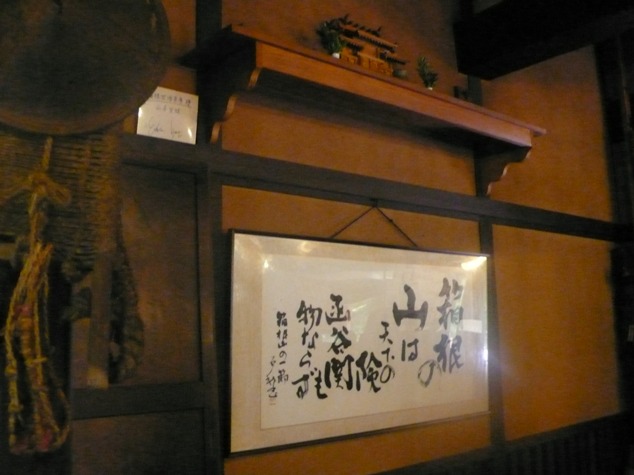 箱根の
山は
天下の
険
函谷関も
物ならず
箱根山の一節